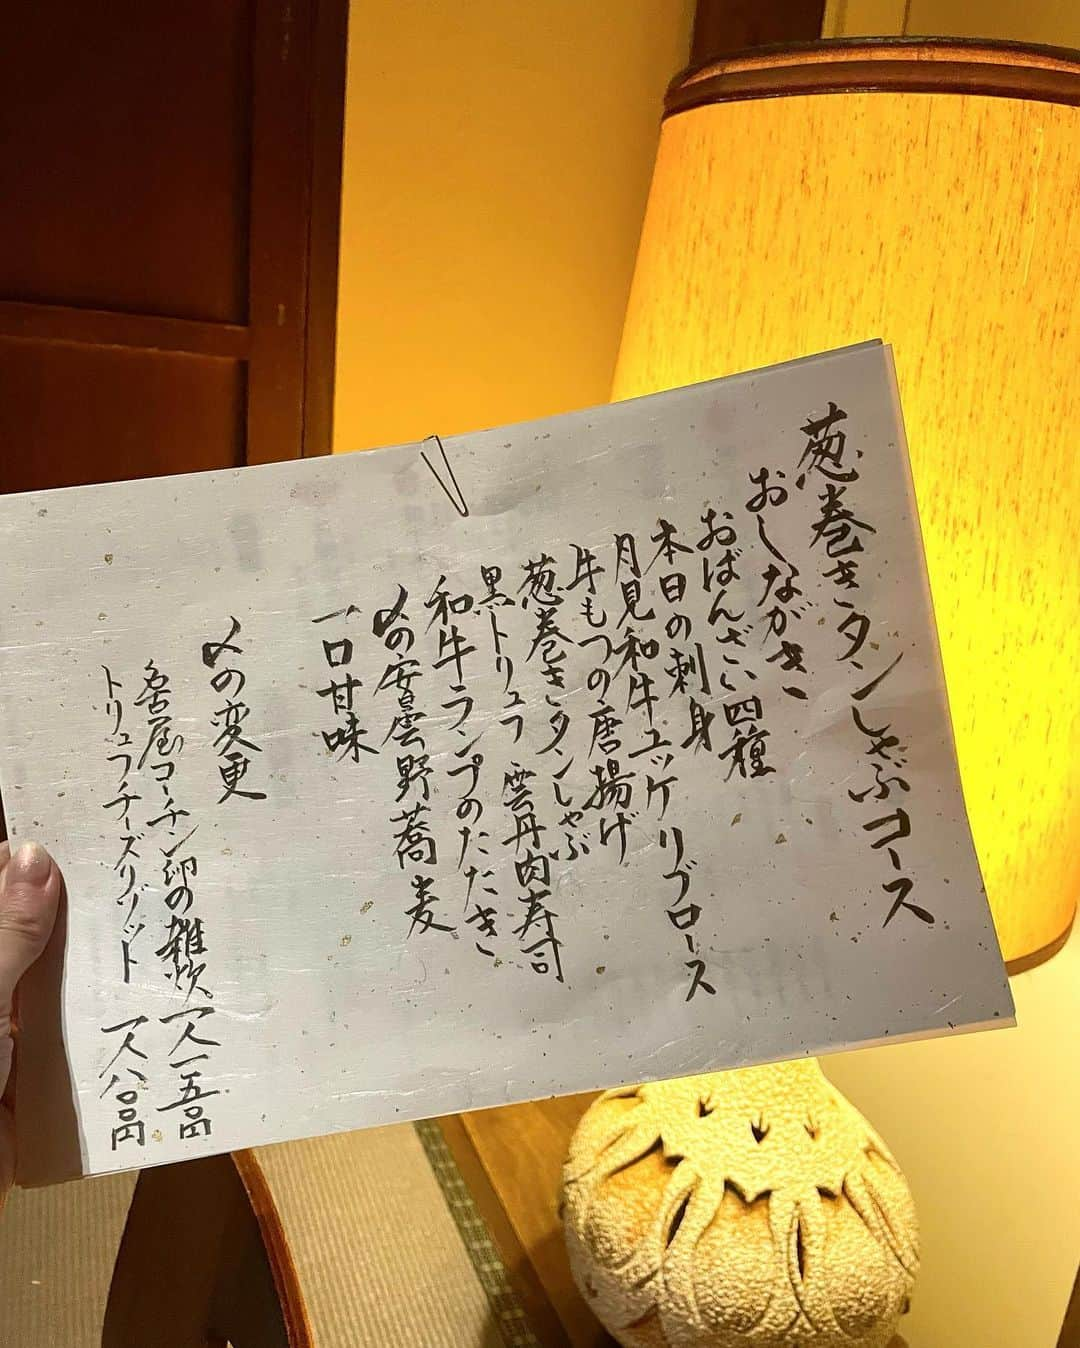 葱巻きタンしゃぶコース
おしながき
おばんざい四種
本日の刺身
月見和牛ユッケ リブロース
牛もつの唐揚げ
葱巻きタンしゃぶ
黒トリュフ 雲丹肉寿司
和牛ランプのたたき
〆の安曇野蕎麦
一口甘味
〆の変更
名古屋コーチン卵の雑炊 一人一五〇円
トリュフチーズリゾット 一人八〇〇円